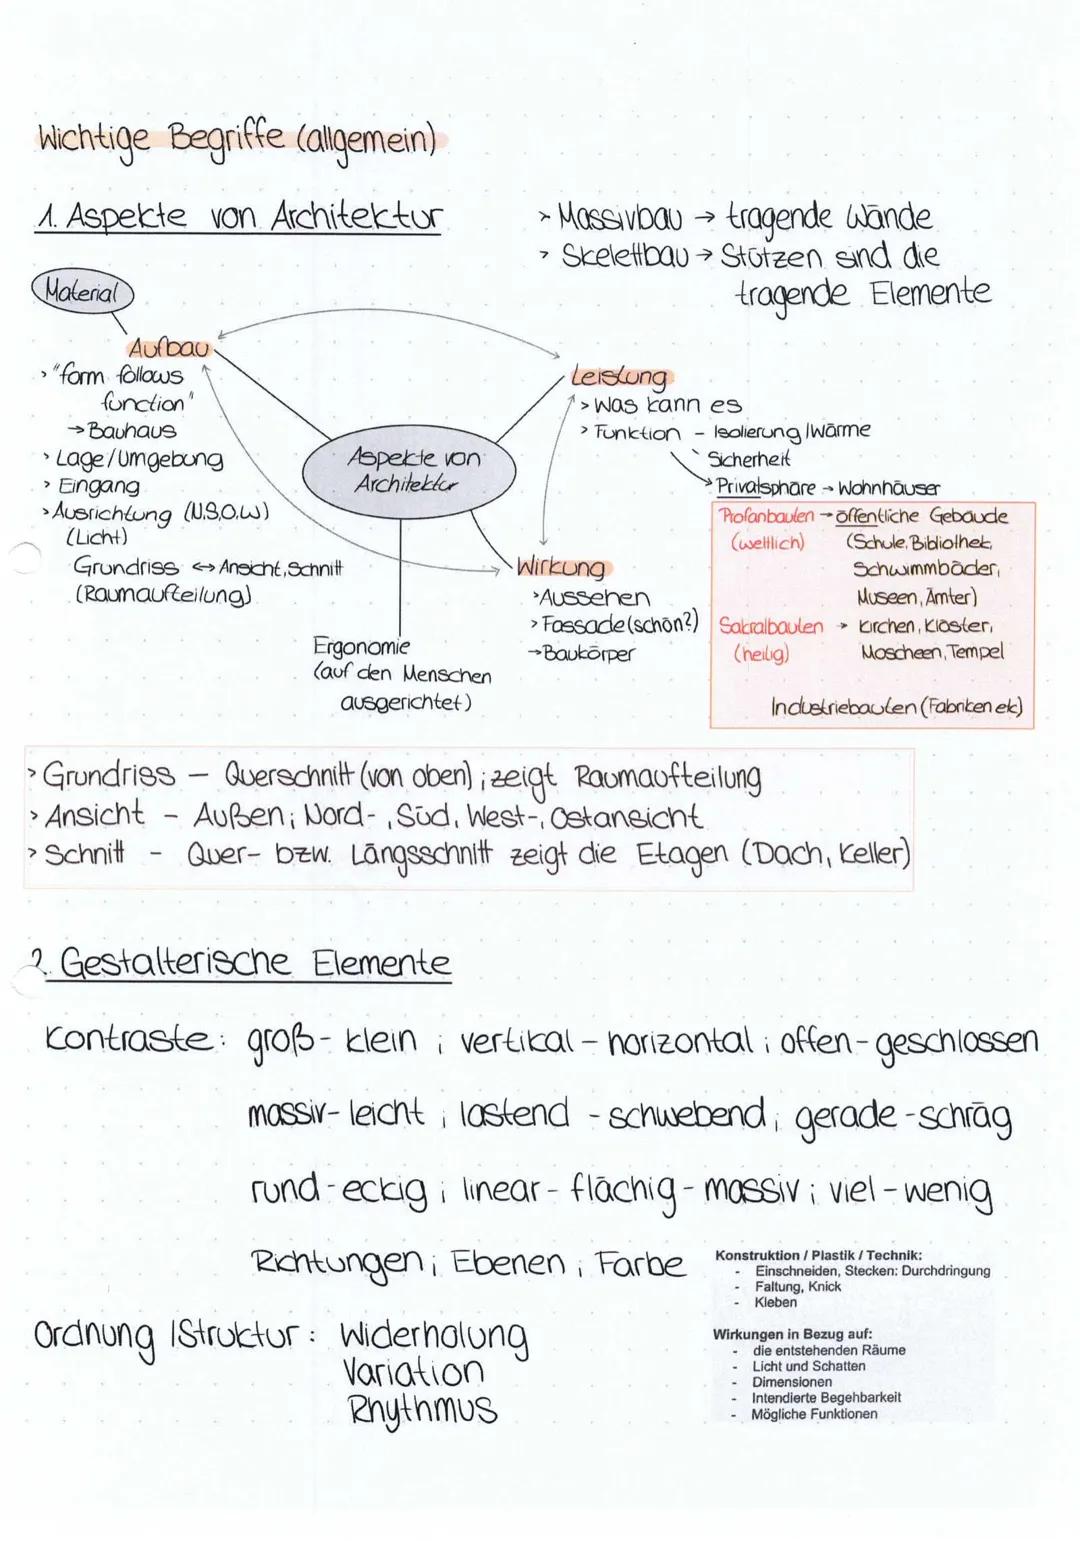 Wichtige Begriffe (allgemein)
1. Aspekte von Architektur
> Massivbau → tragende Wände
> Skelettbau → Stützen sind die
tragende Elemente
Material
Aufbau
> "form follows
function"
→ Bauhaus
> Lage/Umgebung
> Eingang
> Ausrichtung (N,S,O,W)
(Licht)
Grundriss ↔ Ansicht, Schnitt
(Raumaufteilung)
Aspekte von
Architektur
Ergonomie
(auf den Menschen
ausgerichtet)
Leistung
> Was kann es
> Funktion - Isolierung/Wärme
Sicherheit
Privatsphäre → Wohnhäuser
Wirkung
> Aussehen
> Fassade (schön?)
→ Baukörper
Profanbauten → öffentliche Gebäude
(weltlich) (Schule, Bibliothek,
Schwimmbäder,
Museen, Ämter)
Sakralbauten → Kirchen, Klöster,
(heilig) Moscheen, Tempel
Industriebauten (Fabriken etc)
> Grundriss – Querschnitt (von oben) ; zeigt Raumaufteilung
> Ansicht - Außen ; Nord-, Süd, West-, Ostansicht
> Schnitt - Quer- bzw. Längsschnitt zeigt die Etagen (Dach, Keller)
2. Gestalterische Elemente
Kontraste: groß - klein ; vertikal – horizontal ; offen - geschlossen
massiv - leicht ; lastend - schwebend ; gerade - schräg
rund - eckig ; linear - flächig - massiv ; viel - wenig
Richtungen ; Ebenen ; Farbe
Ordnung /Struktur: Widerholung
Variation
Rhythmus
Konstruktion / Plastik / Technik:
- Einschneiden, Stecken: Durchdringung
- Faltung, Knick
- Kleben
Wirkungen in Bezug auf:
- die entstehenden Räume
- Licht und Schatten
- Dimensionen
- Intendierte Begehbarkeit
- Mögliche Funktionen